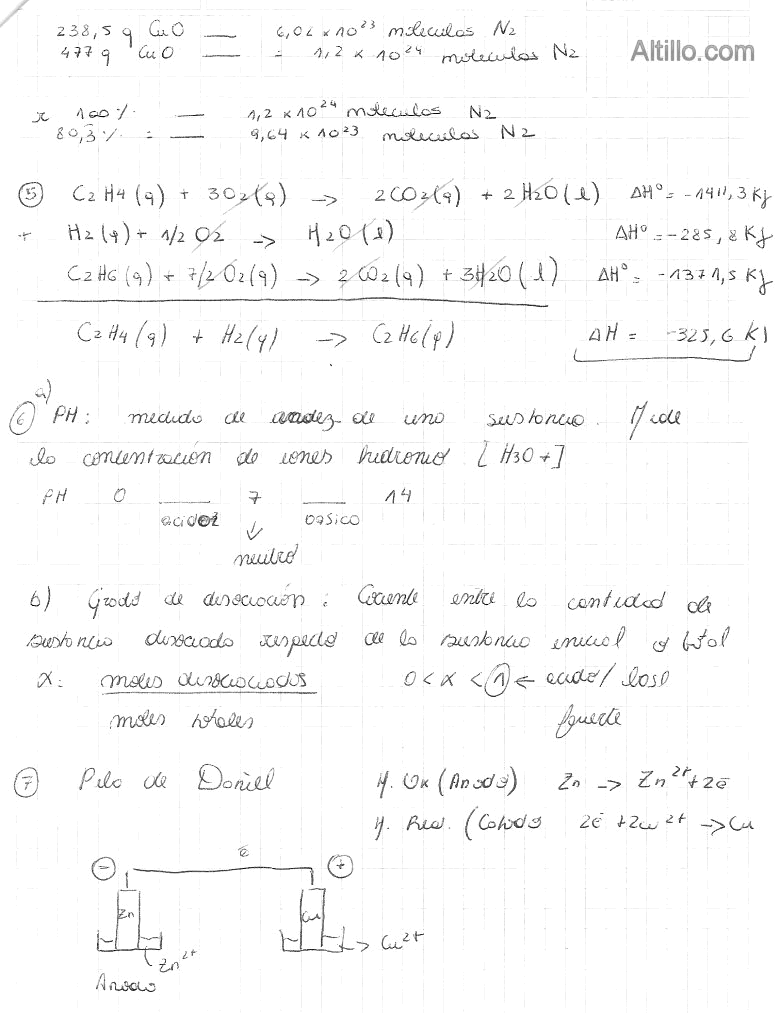 238,5 g CuO — 6,02 x 10²³ moleculas N2
Altillo.com
477 g CuO — = 1,2 x 10²⁴ moleculas N2
x 100% — 1,2 x 10²⁴ moleculas N2
80,3% = — 9,64 x 10²³ moleculas N2
5 C2H4(g) + 3O2(g) → 2CO2(g) + 2H2O(l) ΔH° = -1411,3 Kj
+ H2(g) + 1/2 O2 → H2O(l) ΔH° = -285,8 Kj
C2H6(g) + 7/2 O2(g) → 2CO2(g) + 3H2O(l) ΔH° = -1371,5 Kj
C2H4(g) + H2(g) → C2H6(g) ΔH = -325,6 KJ
a)
6 PH: medida de acidez de una sustancia. Mide
la concentración de iones hidronio [H3O+]
PH 0 — 7 — 14
acidez basico
↓
neutro
b) Grado de disociación: Cociente entre la cantidad de
sustancia disociada respecto de la sustancia inicial o total
α: moles disociados 0 < α < 1 ← acido/base
moles totales fuerte
7 Pila de Daniel H. Ox (Anodo) Zn → Zn²⁺ + 2ē
H. Red. (Catodo 2ē + 2cu²⁺ → Cu
ē
- +
Zn Cu
Zn²⁺ → Cu²⁺
Anodo